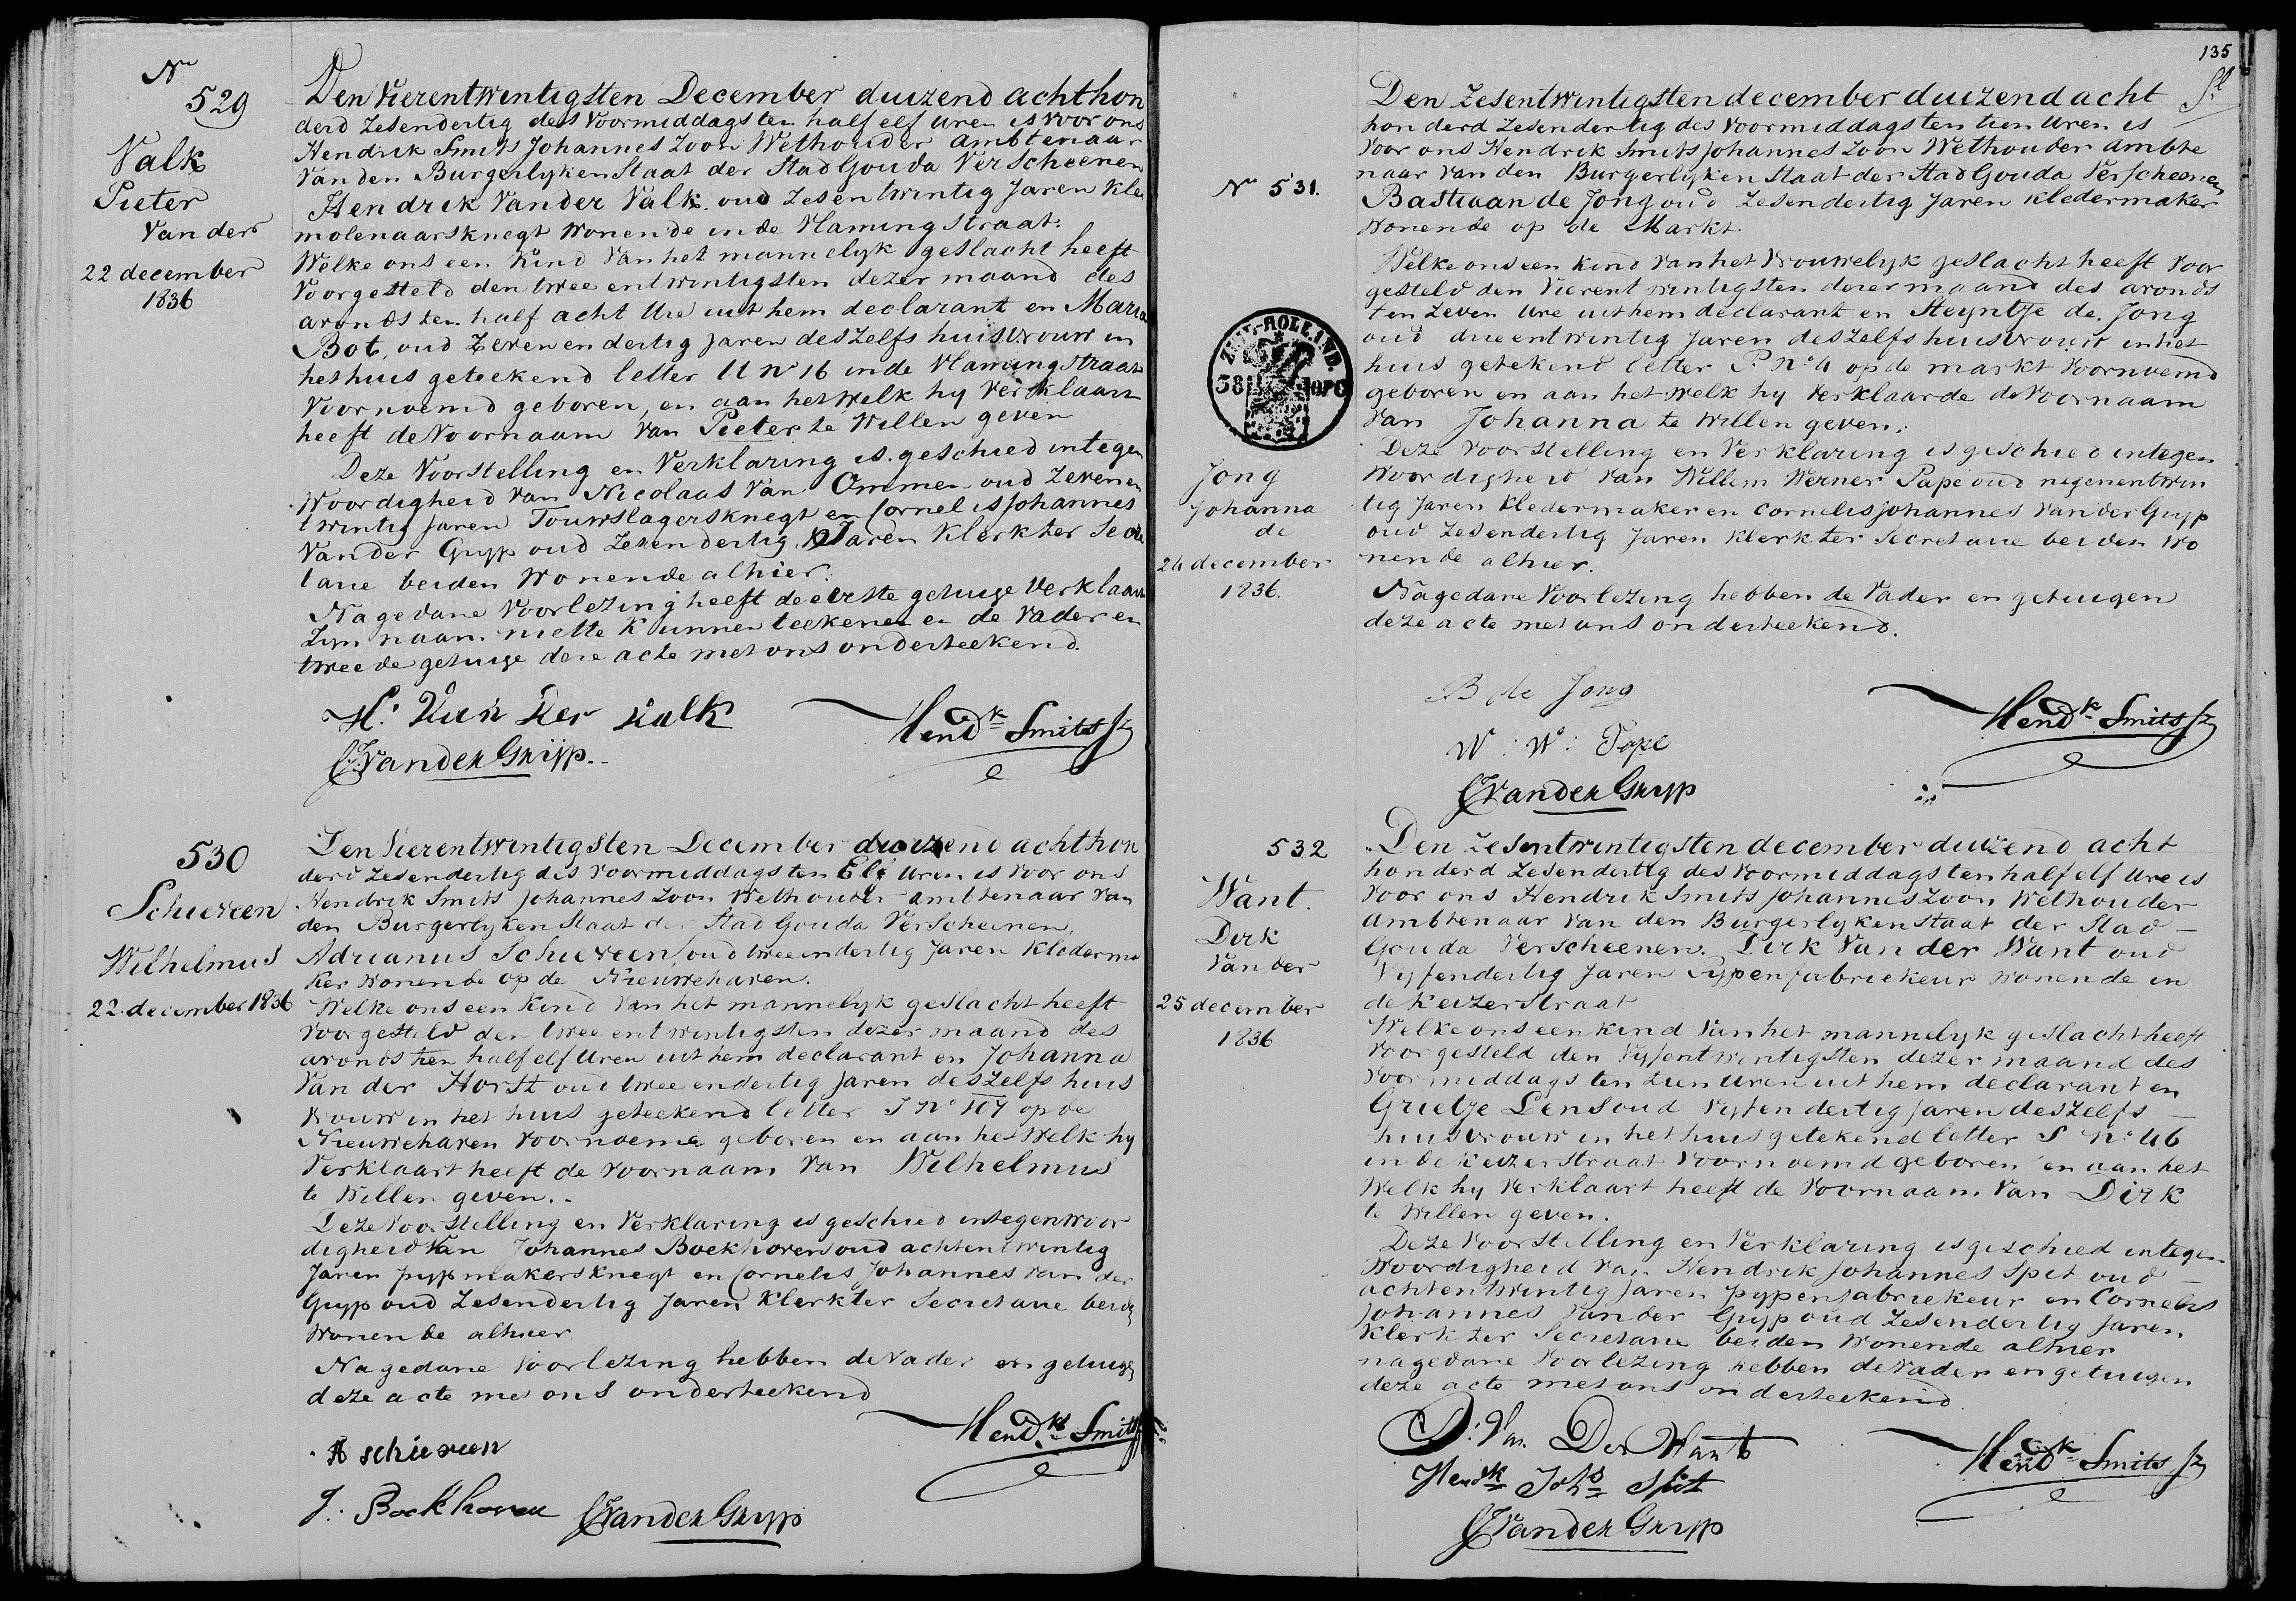 No
529
Valk
Pieter
Van der
22 december
1836
Den Vierentwintigsten December duizend achthon
derd Zesendertig des Voormiddags ten half elf uren is voor ons
Hendrik Smits Johannes Zoon Wethouder Ambtenaar
Van den Burgerlyken Staat der Stad Gouda Verscheenen
Hendrik Vander Valk oud Zesentwintig Jaren
molenaarsknegt wonende in de Vlamingstraat.
Welke ons een Kind Van het mannelyk geslacht heeft
Voorgesteld den twee entwintigsten dezer maand des
avonds ten half acht Ure uit hem declarant en Maria
Bot, oud Zevenendertig Jaren deszelfs huisvrouw in
het huis geteekend letter U No 16 in de Vlamingstraat
Voornoemd geboren, en aan het welk hy Verklaart
heeft de Voornaam Van Pieter te Willen geven
Deze Voorstelling en Verklaring is geschied in tegen
woordigheid van Nicolaas Van Ommen oud Zevenen
twintig Jaren Touwslagersknegt en Cornelis Johannes
Vander Gryp oud Zesendertig Jaren Klerk ter Secre
tarie beiden Wonende alhier.
Na gedane Voorlezing heeft de eerste getuige Verklaart
Zyn naam niet te Kunnen teekenen en de Vader en
tweede getuige deze acte met ons onderteekend.
H. Van der Valk
Hendk Smits Jz
CJ Vander Gryp
530
Schieveen
Wilhelmus
22 december 1836
Den Vierentwintigsten December duizend achthon
derd Zesendertig des Voormiddags ten Elf Uren is Voor ons
Hendrik Smits Johannes Zoon Wethouder Ambtenaar Van
den Burgerlyken Staat der Stad Gouda Verscheenen,
Adrianus Schieveen, oud tweeendertig Jaren Kléderma
Ker Wonende op de Nieuwehaven.
Welke ons een Kind Van het mannelyk geslacht heeft
Voorgesteld den twee entwintigsten dezer maand des
avonds ten half elf Uren uit hem declarant en Johanna
Van der Horst oud twee endertig Jaren deszelfs huis
vrouw in het huis geteekend letter I No 107 op de
Nieuwehaven Voornoemd geboren en aan het Welk hy
Verklaart heeft de Voornaam Van Wilhelmus
te Willen geven.
Deze Voorstelling en Verklaring is geschied in tegenwoor
digheid Van Johannes Boekhoven oud achtentwintig
Jaren pypmakersknegt en Cornelis Johannes Van der
Gryp oud Zesendertig Jaren Klerk ter Secretarie beiden
Wonende alhier
Na gedane Voorlezing hebben de Vader en getuigen
deze acte met ons onderteekend
Hendk Smits
A schieveen
J. Boekhoven CJ Vander Gryp
135
No 531.
ZUID-HOLLAND.
38
Jong
Johanna
de
24 december
1836.
Den Zesentwintigsten december duizend acht
honderd Zesendertig des Voormiddags ten tien Uren is
Voor ons Hendrik Smits Johannes Zoon Wethouder ambte
naar Van den Burgerlyken Staat der Stad Gouda Verscheenen
Bastiaan de Jong oud Zesendertig Jaren Kledermaker
Wonende op de Markt.
Welke ons een Kind Van het Vrouwelyk geslacht heeft Voor
gesteld den Vierentwintigsten dezer maand des avonds
ten Zeven Ure uit hem declarant en Steyntje de Jong
oud drieentwintig Jaren deszelfs huisvrouw in het
huis getekend letter P. No 4 op de markt Voornoemd
geboren en aan het welk hy Verklaarde de Voornaam
Van Johanna te Willen geven.
Deze Voorstelling en Verklaring is geschied in tegen
Woordigheid Van Willem Werner Pape oud negenentwin
tig Jaren Kledermaker en Cornelis Johannes Van der Gryp
oud Zesendertig Jaren Klerk ter Secretarie beiden Wo
nende alhier.
Nagedane Voorlezing hebben de Vader en getuigen
deze acte met ons onderteekend.
B de Jong
Hendk Smits Jz
W: W: Pape
CJ Vander Gryp
532
Want.
Dirk
Van der
25 december
1836
Den Zesentwintigsten december duizend acht
honderd Zesendertig des Voormiddags ten half elf Ure is
Voor ons Hendrik Smits Johannes Zoon Wethouder
Ambtenaar Van den Burgerlyken Staat der Stad
Gouda Verscheenen. Dirk Van der Want oud
Vyfendertig Jaren Pypenfabriekeur Wonende in
de Keizerstraat
Welke ons een kind Van het mannelyk geslacht heeft
Voorgesteld den Vyfentwintigsten dezer maand des
Voormiddags ten tien Uren uit hem declarant en
Grietje Lens oud Vyfendertig Jaren deszelfs
huisvrouw in het huis getekend letter S No 46
in de Keizerstraat Voornoemd geboren en aan het
Welk hy Verklaart heeft de Voornaam Van Dirk
te Willen geven.
Deze Voorstelling en Verklaring is geschied in tegen
Woordigheid Van Hendrik Johannes Spit oud
achtentwintig Jaren pypenfabriekeur en Cornelis
Johannes Vander Gryp oud Zesendertig Jaren
Klerk ter Secretarie beiden Wonende alhier
nagedane Voorlezing hebben de Vader en getuigen
deze acte met ons onderteekend
D: Van Der Want
Hendk Johs Spit
Hendk Smits Jz
CJ Vander Gryp